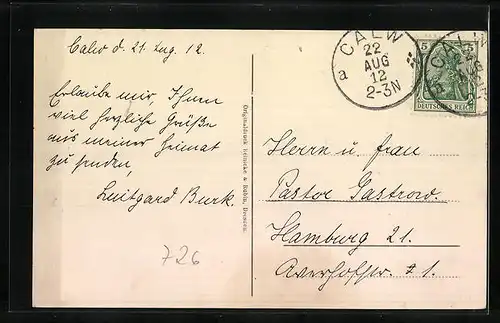 Calw d. 21. Aug. 12.
Erlaube mir, Ihnen
viel herzliche Grüße
aus meiner Heimat
zu senden,
Luitgard Burk.
726
Originaldruck Reinicke & Rubin, Dresden.
CALW
22
AUG
12
2-3N
a
CALW
22
AUG
5
DEUTSCHES REICH
Herrn u. Frau
Pastor Gastrow.
Hamburg 21.
Averhoffstr. 71.